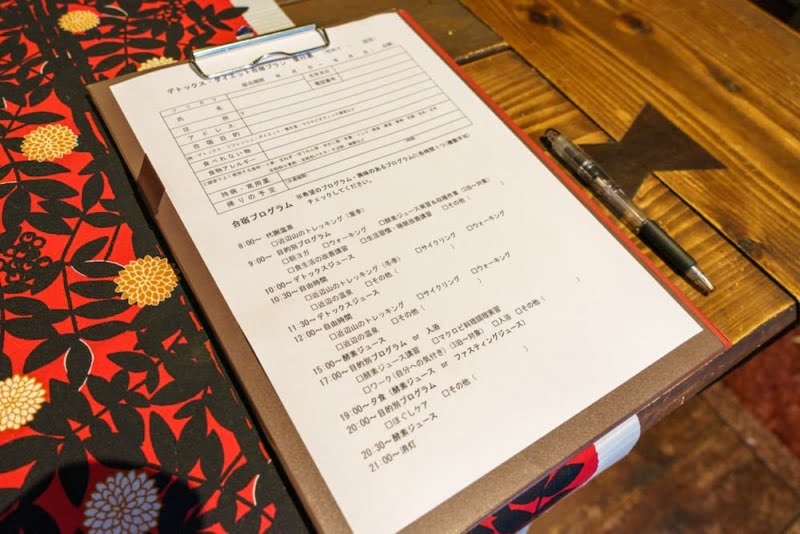 デトックス・ダイエット合宿プラン 受付票
宿泊期間 年 月 日 ～ 年 月 日
フリガナ
氏 名
生年月日
電話番号
住 所
アドレス
合宿目的
食べれない物
食物アレルギー
持病・常用薬
帰りの予定
合宿プログラム ※希望のプログラム・興味のあるプログラムに各時間1つ(複数不可)
チェックしてください。
8:00～ 代謝温茶
□近辺山のトレッキング（夏季）
9:00～ 目的別プログラム
□朝ヨガ □ウォーキング □酵素ジュース実習＆収穫作業（3泊～対象）
□食生活の改善講習 □生活習慣・睡眠改善講習 □その他（
10:00～デトックスジュース
10:30～自由時間
□近辺山のトレッキング（冬季） □サイクリング □ウォーキング
□近辺の温泉 □その他（ ）
11:30～デトックスジュース
12:00～自由時間
□近辺山のトレッキング □サイクリング □ウォーキング
□近辺の温泉 □その他（ ）
15:00～酵素ジュース
17:00～目的別プログラム or 入浴
□酵素ジュース講習 □マクロビ料理調理実習
□ワーク（自分への気付き）（3泊～対象） □入浴 □その他（ ）
19:00～夕食（酵素ジュース or ファスティングジュース）
20:00～目的別プログラム
□ほぐしケア □その他（ ）
20:30～酵素ジュース
21:00～消灯